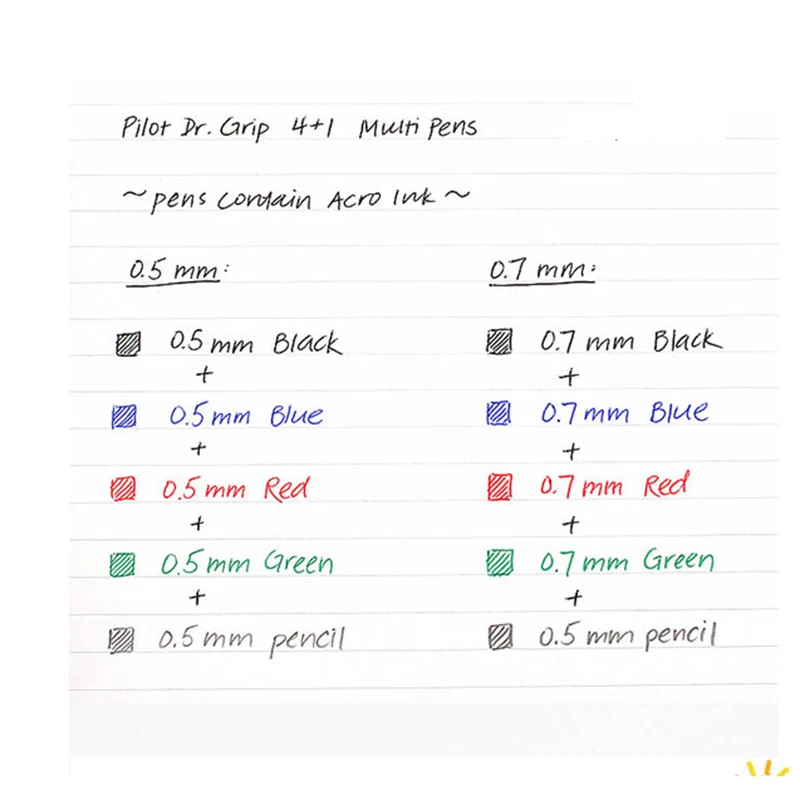 Pilot Dr. Grip 4+1 Multi Pens
~ pens contain Acro Ink ~
0.5 mm:
0.5 mm Black
+
0.5 mm Blue
+
0.5 mm Red
+
0.5 mm Green
+
0.5 mm pencil
0.7 mm:
0.7 mm Black
+
0.7 mm Blue
+
0.7 mm Red
+
0.7 mm Green
+
0.5 mm pencil